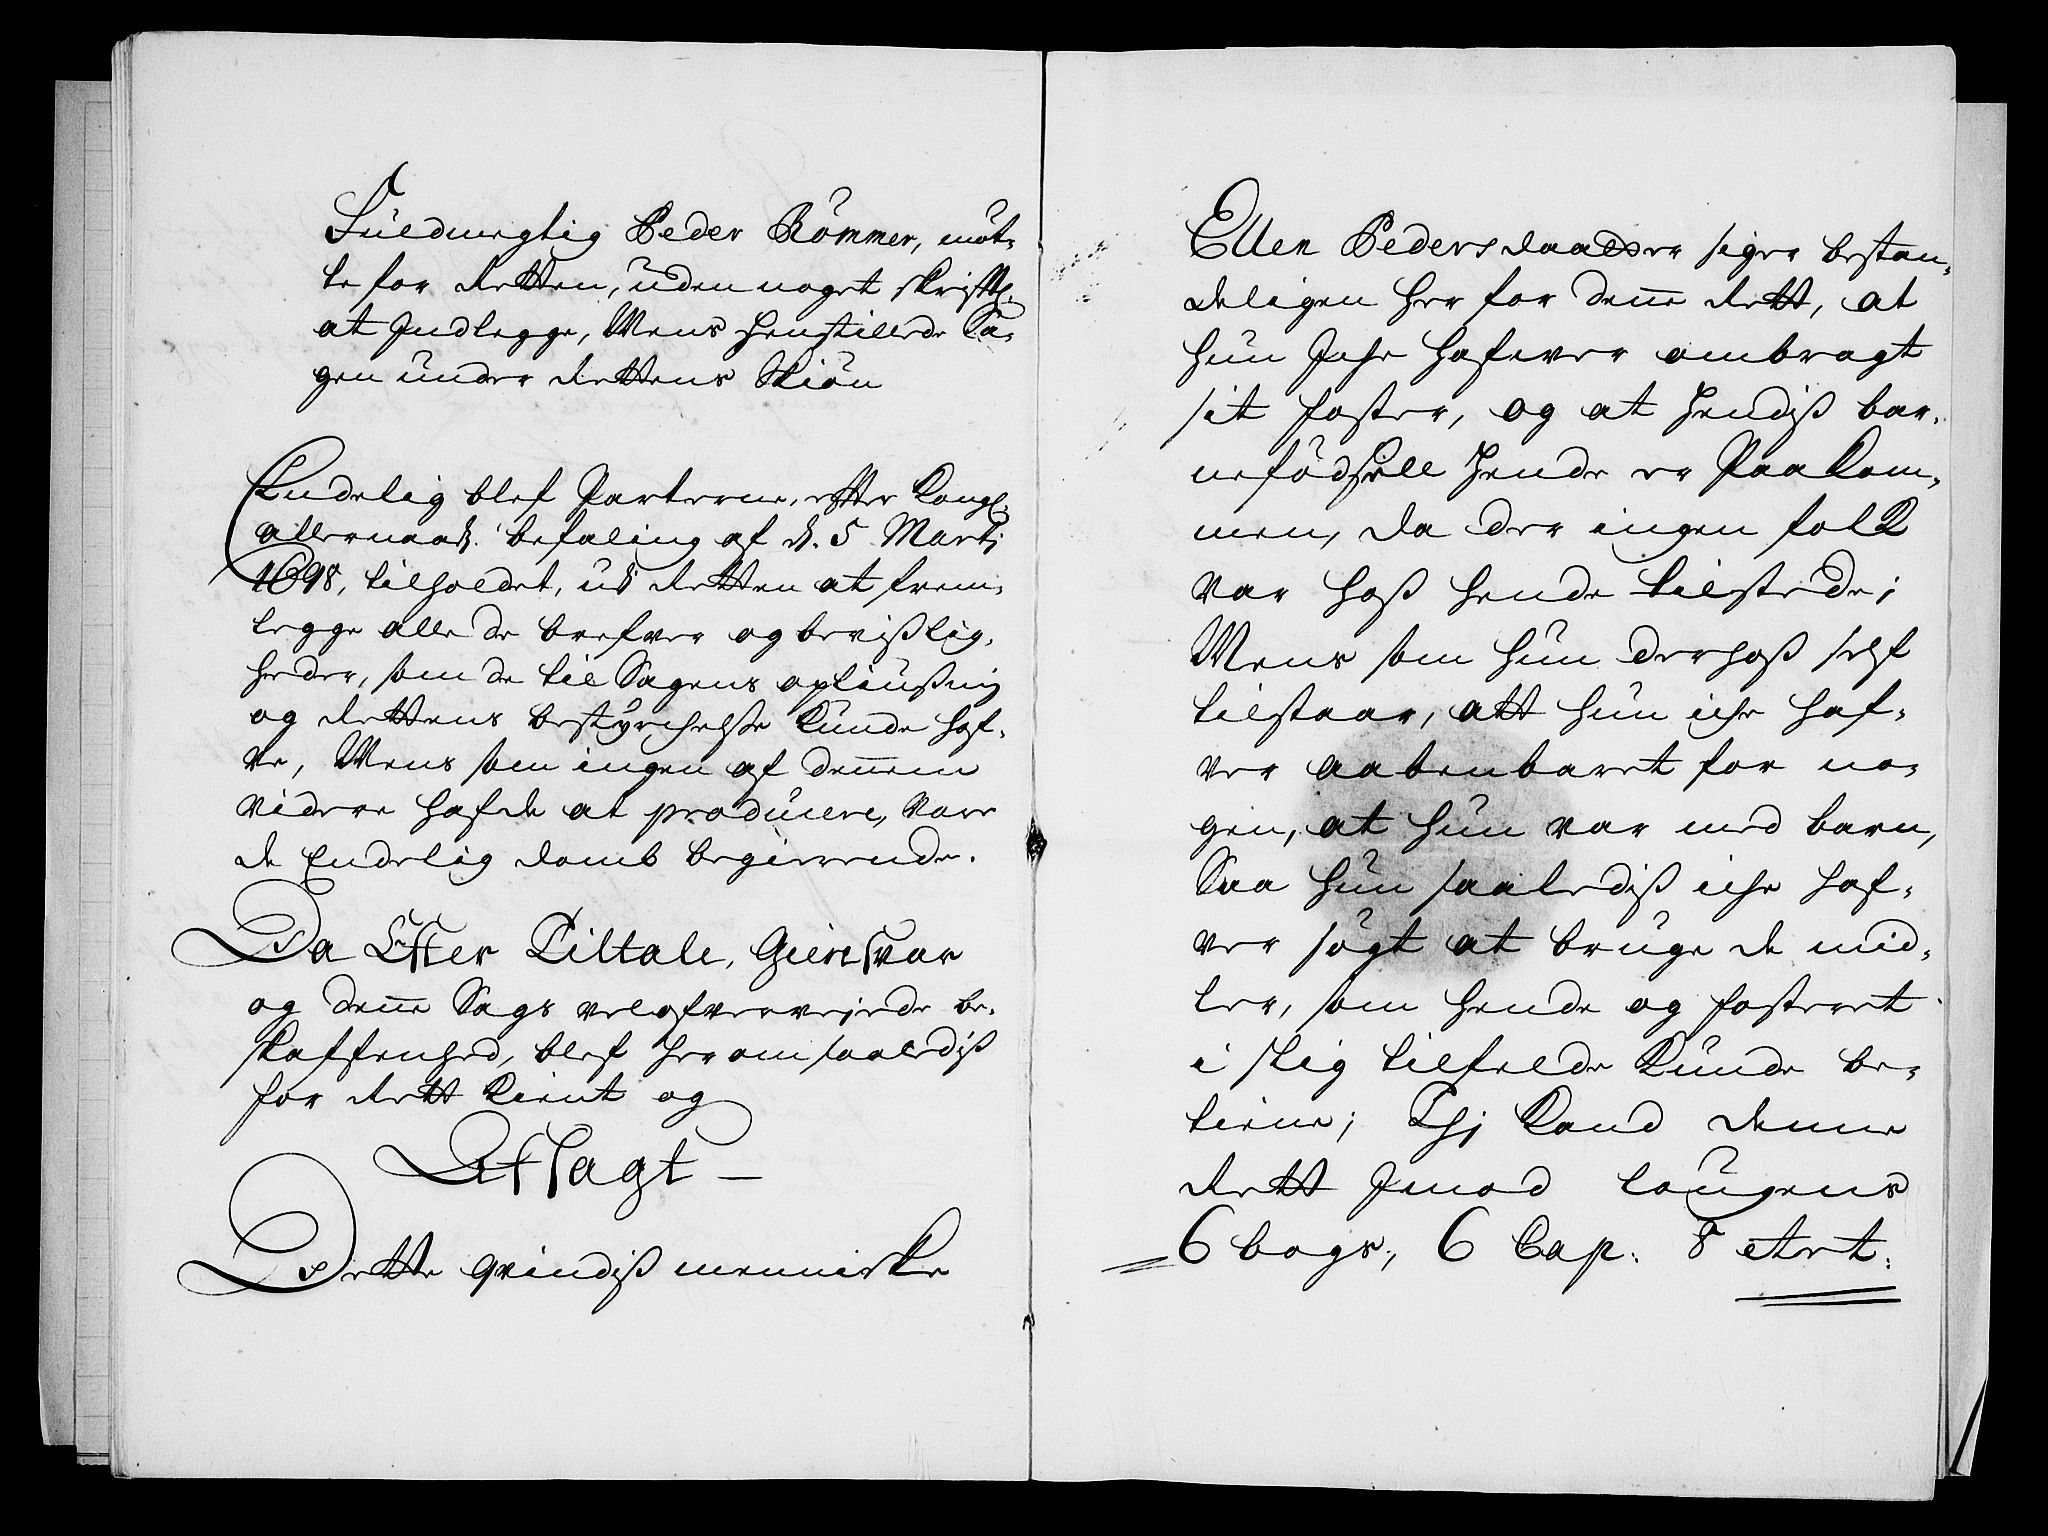 Fuldmegtig Peder Römmer, möt-
te for Retten, uden noget skriftl:
at Indlegge, Mens henstillede Sa-
gen under Rettens Skiön
Endelig blef Parterne, efter Kongl:
allernaad: befaling af d. 5 Martj
1698, tilholdet, ud Retten at frem-
legge alle de brefver og bevißlig-
heder, som de til Sagens oplÿußning
og Rettens bestÿrchelße kunde haf-
ve, Mens som ingen af dennem
videre hafde at producere, vare
de Endelig domb begierende.
Da Efter Tiltale, Giensvar
og denne Sags velofverveiede be-
skaffenhed, blef her om saalediß
for Rett kient og
Afsagt —
Dette qvindiß menniske
Ellen Pedersdaatter siger bestan-
deligen her for denne Rett, at
hun Iche hafver ombragt
sit foster, og at hendiß bar-
nefödsell hende er Paakom-
men, da der ingen folk
var hoß hende tilstede;
Mens som hun derhoß self
tilstaar, att hun iche haf-
ver aabenbaret for no-
gen, at hun var med barn,
Saa hun saalediß iche haf-
ver sögt at bruge de mid-
ler, som hende og fosteret
i slig tilfelde kunde be-
tiene; Thj kand denne
Rett Imod lougens
6 bogs, 6 Cap: 8 Art: